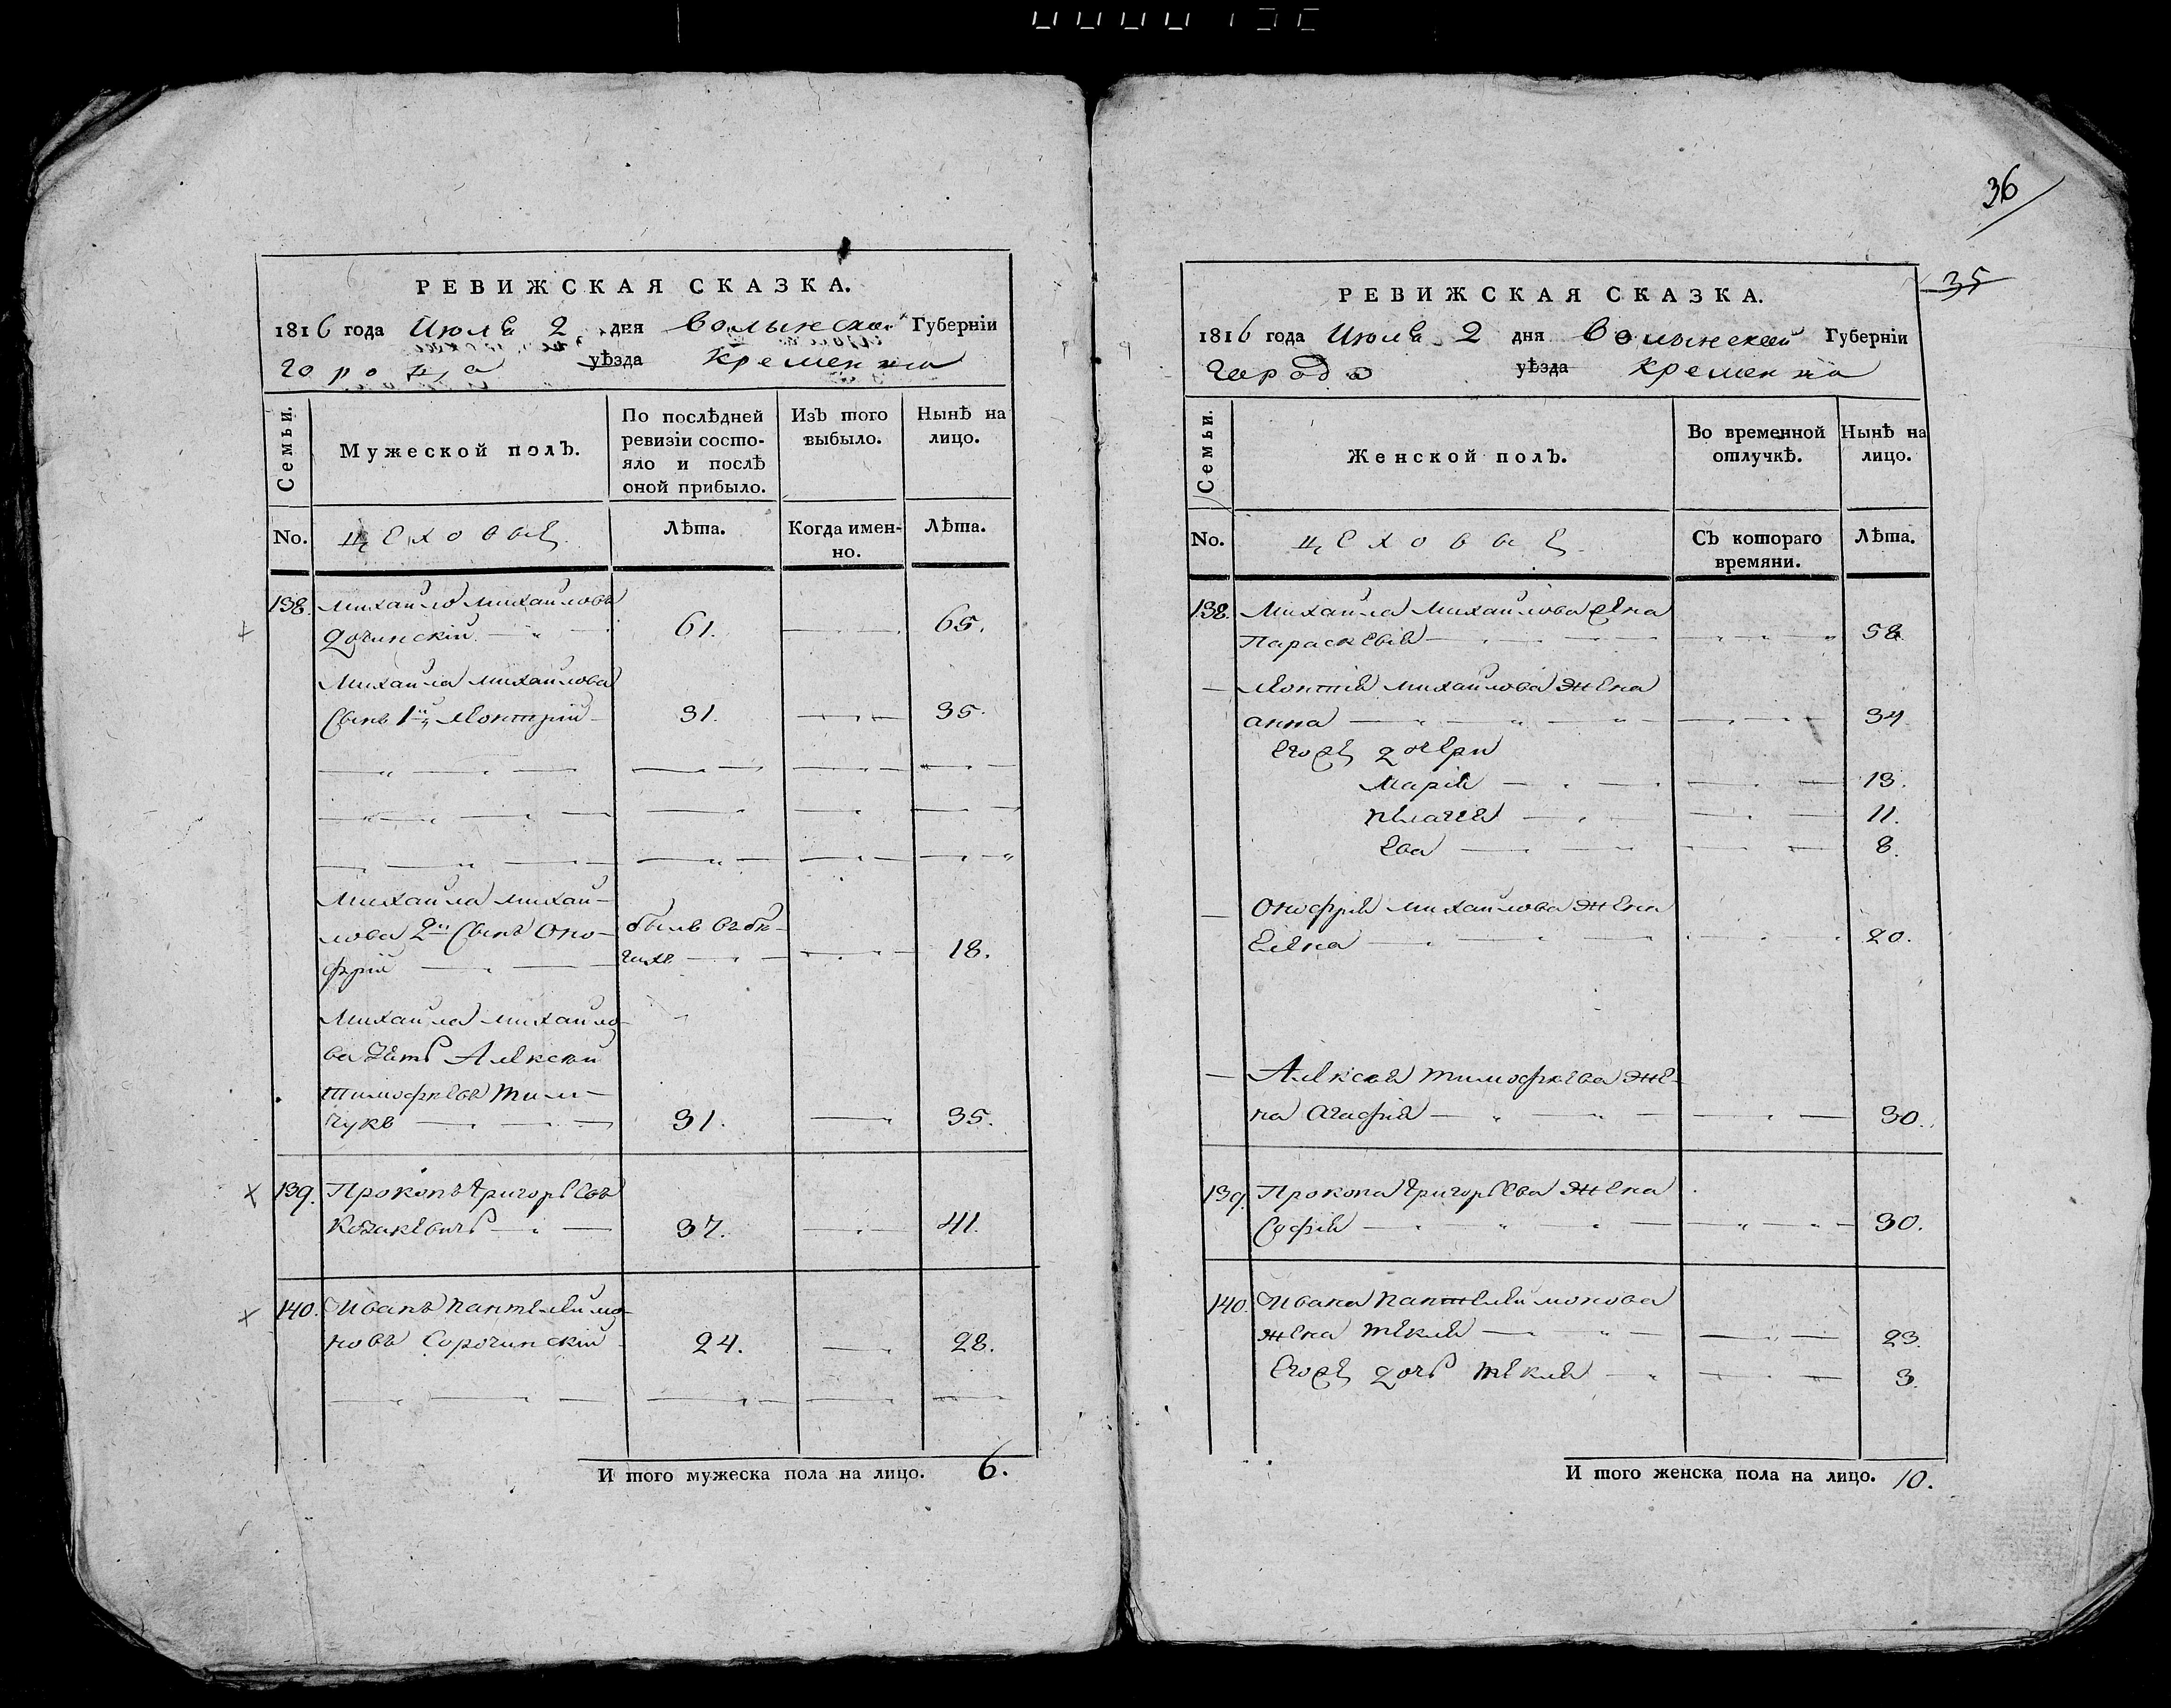 РЕВИЖСКАЯ СКАЗКА.
1816 года Июля 2 дня Волынской Губерніи
города уѣзда Кременца
Семьи.
Мужеской полъ.
По послѣдней ревизіи состояло и послѣ оной прибыло.
Изъ того выбыло.
Нынѣ на лицо.
No.
цеховые
Лѣта.
Когда именно.
Лѣта.
138. Михайло Михайловъ
61. 65.
Михайла Михайлова
Сынъ 1й 31. 35.
Михайла Михай-
лова 2й Сынъ Оно- былъ въ бѣ-
фрій гахъ 18.
Михайла Михайло-
ва зять Алексѣй
Тимофѣевъ
31. 35.
139. Прокопъ Григорьевъ
37. 41.
140. Иванъ Пантелеймо-
новъ Сорочинскій 24. 28.
И того мужеска пола на лицо. 6.
36
35
РЕВИЖСКАЯ СКАЗКА.
1816 года Июля 2 дня Волынской Губерніи
города уѣзда Кременца
Семьи.
Женской полъ.
Во временной отлучкѣ.
Нынѣ на лицо.
No.
цеховые
Съ котораго времяни.
Лѣта.
138. Михайла Михайлова жена
Параскевія 58
Михайлова жена
анна 34
Егоже дочери
Марія 13.
11.
Ева 8.
Онофрія Михайлова жена
Елена 20.
Алексѣя Тимофѣева же-
на Агафія 30.
139. Прокопа Григорьева жена
Софія 30.
140. Ивана Пантелеймонова
жена Текля 23.
Егоже дочь Текля 3.
И того женска пола на лицо. 10.